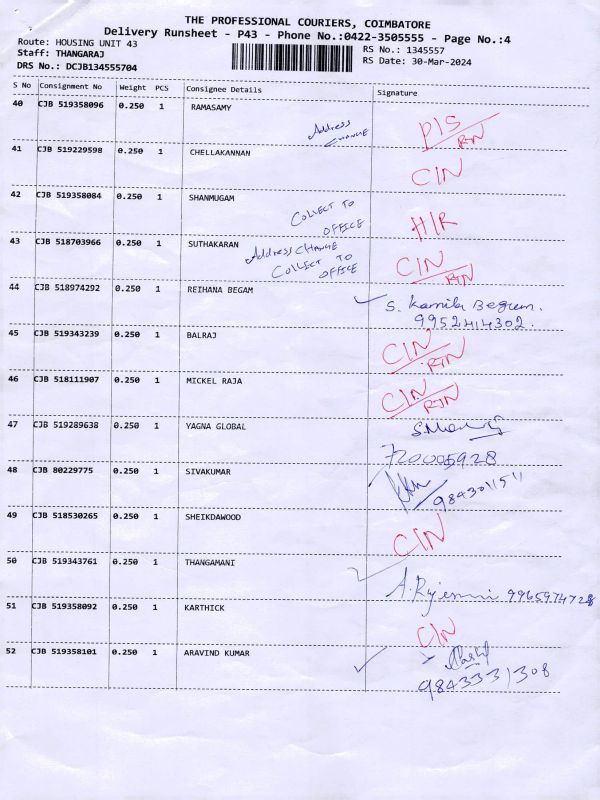 THE PROFESSIONAL COURIERS, COIMBATORE
Delivery Runsheet - P43 - Phone No.:0422-3505555 - Page No.:4
Route: HOUSING UNIT 43
RS No.: 1345557
Staff: THANGARAJ
RS Date: 30-Mar-2024
DRS No.: DCJB134555704
S No Consignment No Weight PCS Consignee Details Signature
40 CJB 519358096 0.250 1 RAMASAMY
Address CHANGE
DIS/RTN
41 CJB 519229598 0.250 1 CHELLAKANNAN
CIN
42 CJB 519358084 0.250 1 SHANMUGAM
COLLECT TO OFFICE
H/R
43 CJB 518703966 0.250 1 SUTHAKARAN
Address CHANGE
COLLECT TO OFFICE
CIN/RTN
44 CJB 518974292 0.250 1 REIHANA BEGAM
S. Kamila Begum.
9952414302.
45 CJB 519343239 0.250 1 BALRAJ
CIN/RTN
46 CJB 518111907 0.250 1 MICKEL RAJA
CIN/RTN
47 CJB 519289638 0.250 1 YAGNA GLOBAL
48 CJB 80229775 0.250 1 SIVAKUMAR
49 CJB 518530265 0.250 1 SHEIKDAWOOD
CIN
50 CJB 519343761 0.250 1 THANGAMANI
9965974728
51 CJB 519358092 0.250 1 KARTHICK
CIN
52 CJB 519358101 0.250 1 ARAVIND KUMAR
9843331308